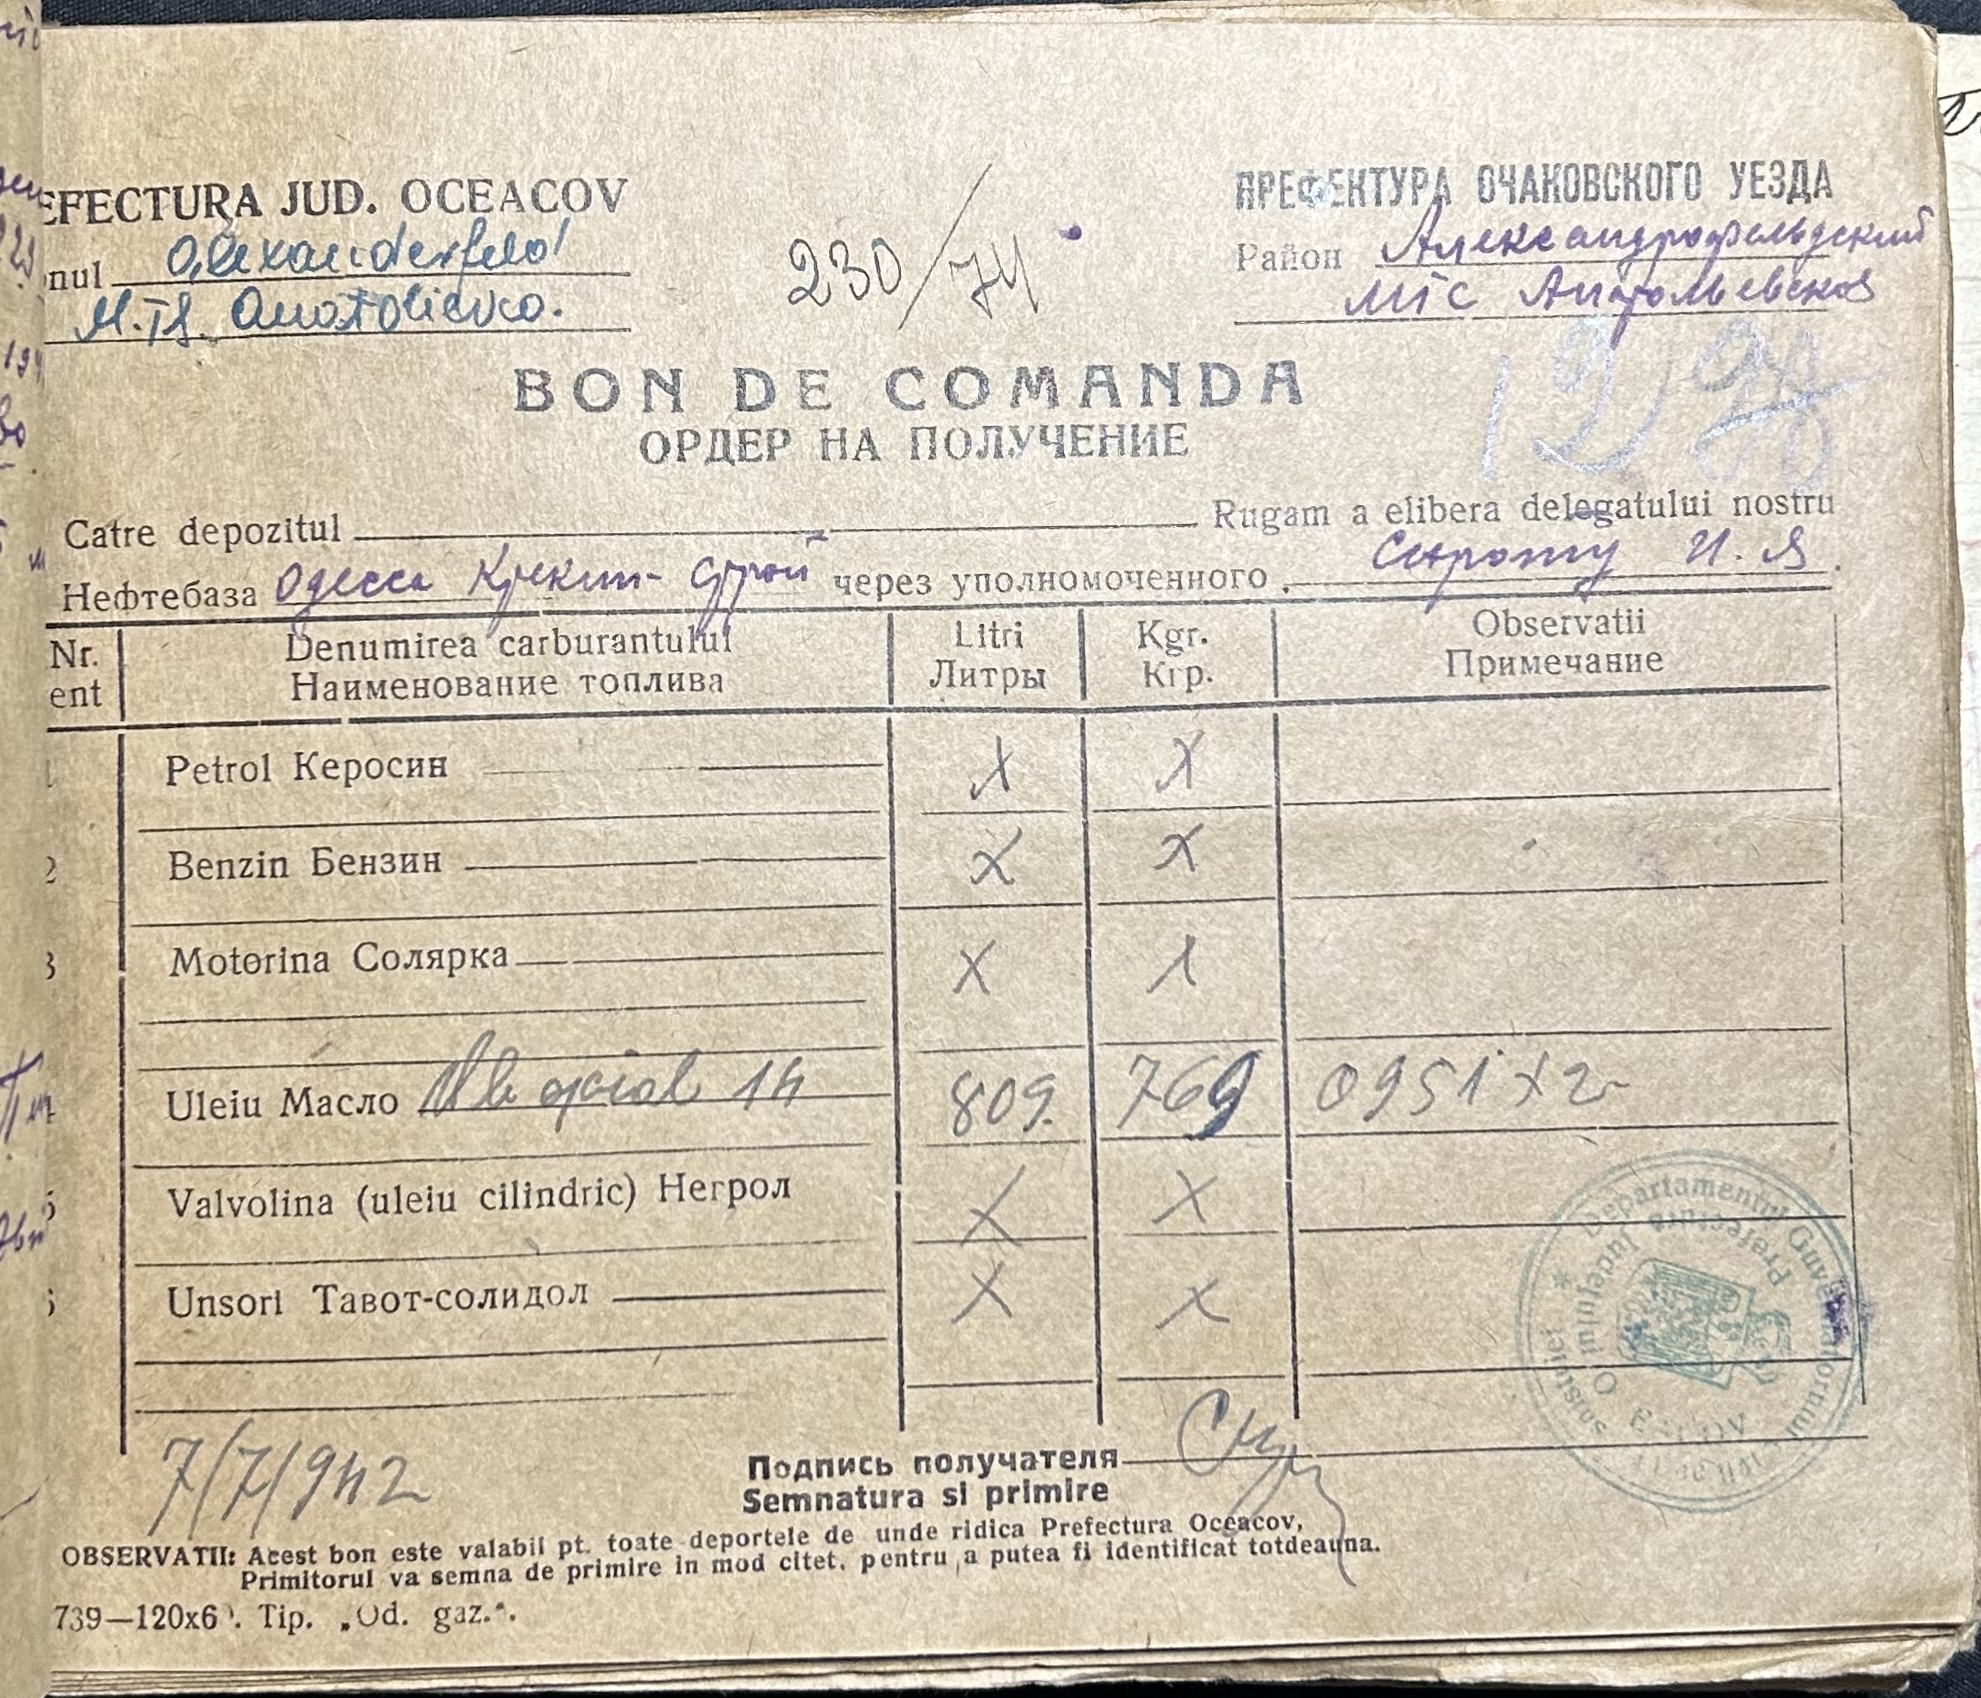 EFECTURA JUD. OCEACOV
nul Alexanderfeld
M.T.S. Anatolievca.
230/74
ПРЕФЕКТУРА ОЧАКОВСКОГО УЕЗДА
Район Александрофельдский
МТС Анатольевская
12
BON DE COMANDA
ОРДЕР НА ПОЛУЧЕНИЕ
Catre depozitul Rugam a elibera delegatului nostru
Нефтебаза Одесса Крекинг-строй через уполномоченного Сироту И. Я.
Nr. Denumirea carburantului Litri Kgr. Observatii
ent Наименование топлива Литры Кгр. Примечание
1 Petrol Керосин X X
2 Benzin Бензин X X
3 Motorina Солярка X X
4 Uleiu Масло 14 809. 769 0951
5 Valvolina (uleiu cilindric) Негрол X X
6 Unsori Тавот-солидол X X
7/7/942
Подпись получателя
Semnatura si primire
OBSERVATII: Acest bon este valabil pt. toate deportele de unde ridica Prefectura Oceacov,
Primitorul va semna de primire in mod citet, pentru a putea fi identificat totdeauna.
739—120x6 . Tip. „Od. gaz.".
Departamentul Guvernatorului
Prefectura Judetului O